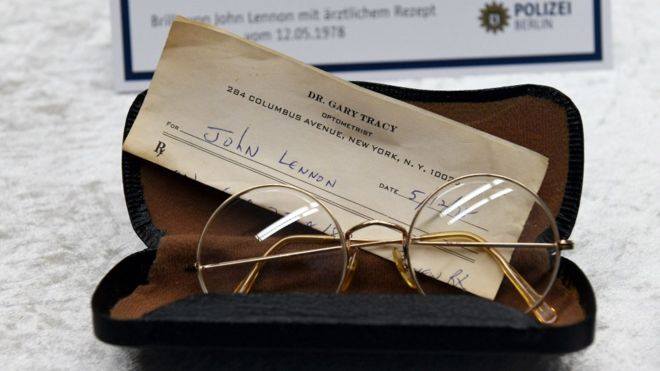 Brille von John Lennon mit ärztlichem Rezept
vom 12.05.1978
POLIZEI
BERLIN
DR. GARY TRACY
OPTOMETRIST
284 COLUMBUS AVENUE, NEW YORK, N. Y.
FOR John Lennon
DATE
Rx